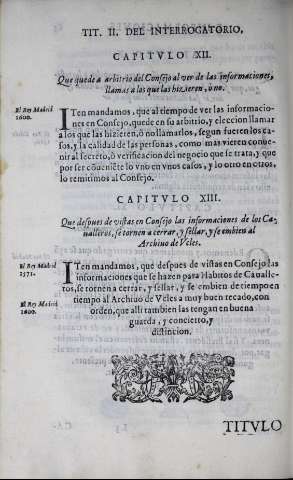 TIT. II. DEL INTERROGATORIO,
CAPITVLO XII.
Que quede a arbitrio del Consejo al ver de las informaciones,
llamas a los que las hizieren, ò no.
El Rey Madrid
1600.
ITen mandamos, que al tiempo de ver las informacio-
nes en Consejo, quede en su arbitrio, y eleccion llamar
a los que las hizieren, ò no llamarlos, segun fueren los ca-
sos, y la calidad de las personas, como mas vieren conue-
nir al secreto, ò verificacion del negocio que se trata, y que
por ser cõueniẽte lo vno en vnos casos, y lo otro en otros,
lo remitimos al Consejo.
CAPITVLO XIII.
Que despues de vistas en Consejo las informaciones de los Ca-
ualleros, se tornen a cerrar, y sellar, y se embien al
Archiuo de Vcles.
El Rey Madrid
1571.
ITen mandamos, que despues de vistas en Consejo las
informaciones que se hazen para Habitos de Cavalle-
ros, se tornen a cerrar, y sellar, y se embien de tiempo en
El Rey Madrid
1600.
tiempo al Archiuo de Vcles a muy buen recado, con
orden, que alli tambien las tengan en buena
guarda, y concierto, y
distincion.
TITVLO